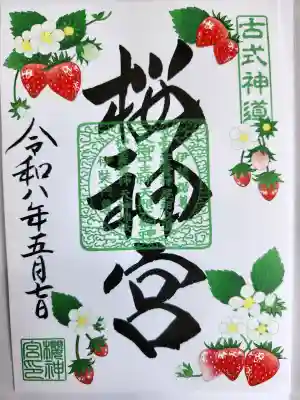 古式神道
桜神宮
令和八年五月七日
櫻神
宮印